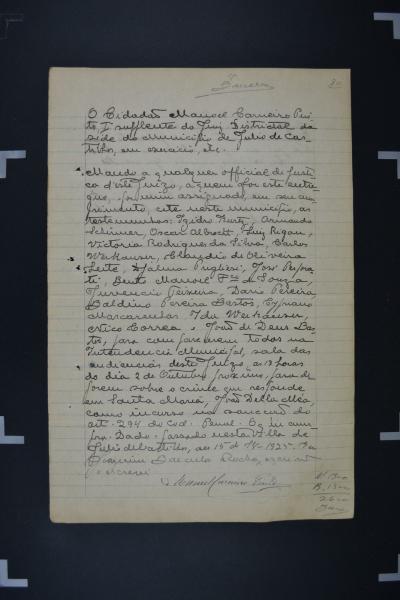 O Cidadão Manoel Carneiro Pin-
to, 1º supplente do Juiz Districtal da
séde do Municipio de Julio de Cas-
tilhos, em exercicio, etc.
Mando a qualquer official de justi-
ça d'este Juizo, a quem for este entre-
gue, por mim assignado, em seu cum-
primento, cite neste municipio, as
testemunhas: Izidro Kurtz, Armando
Schirmer, Oscar Albrecht, Luiz Rigon,
Victoria Rodrigues da Silva, Carlos
Claudio de Oliveira
Leite, Djalma Pugliesi, José
Bento Manoel de Souza,
Juvencio Teixeira, Dario Pereira,
Baldino Pereira Bastos, Cypriano
Mascarenhas, Ida
Correa e José de Deus Bas-
tos, para comparecerem todos na
Intendencia Municipal, sala das
audiencias deste Juizo, ás 13 horas
do dia 2 de Outubro proximo, para de-
porem sobre o crime que responde
em Santa Maria, José Della Méa,
como incurso na sancção do
art. 294 do Cod. Penal. O q. cum-
pra. Dado e passado nesta Villa de
Julio de Castilhos, aos 15 de 1925. Eu
Rocha, escrivão
o escrevi
Manoel Carneiro Pinto